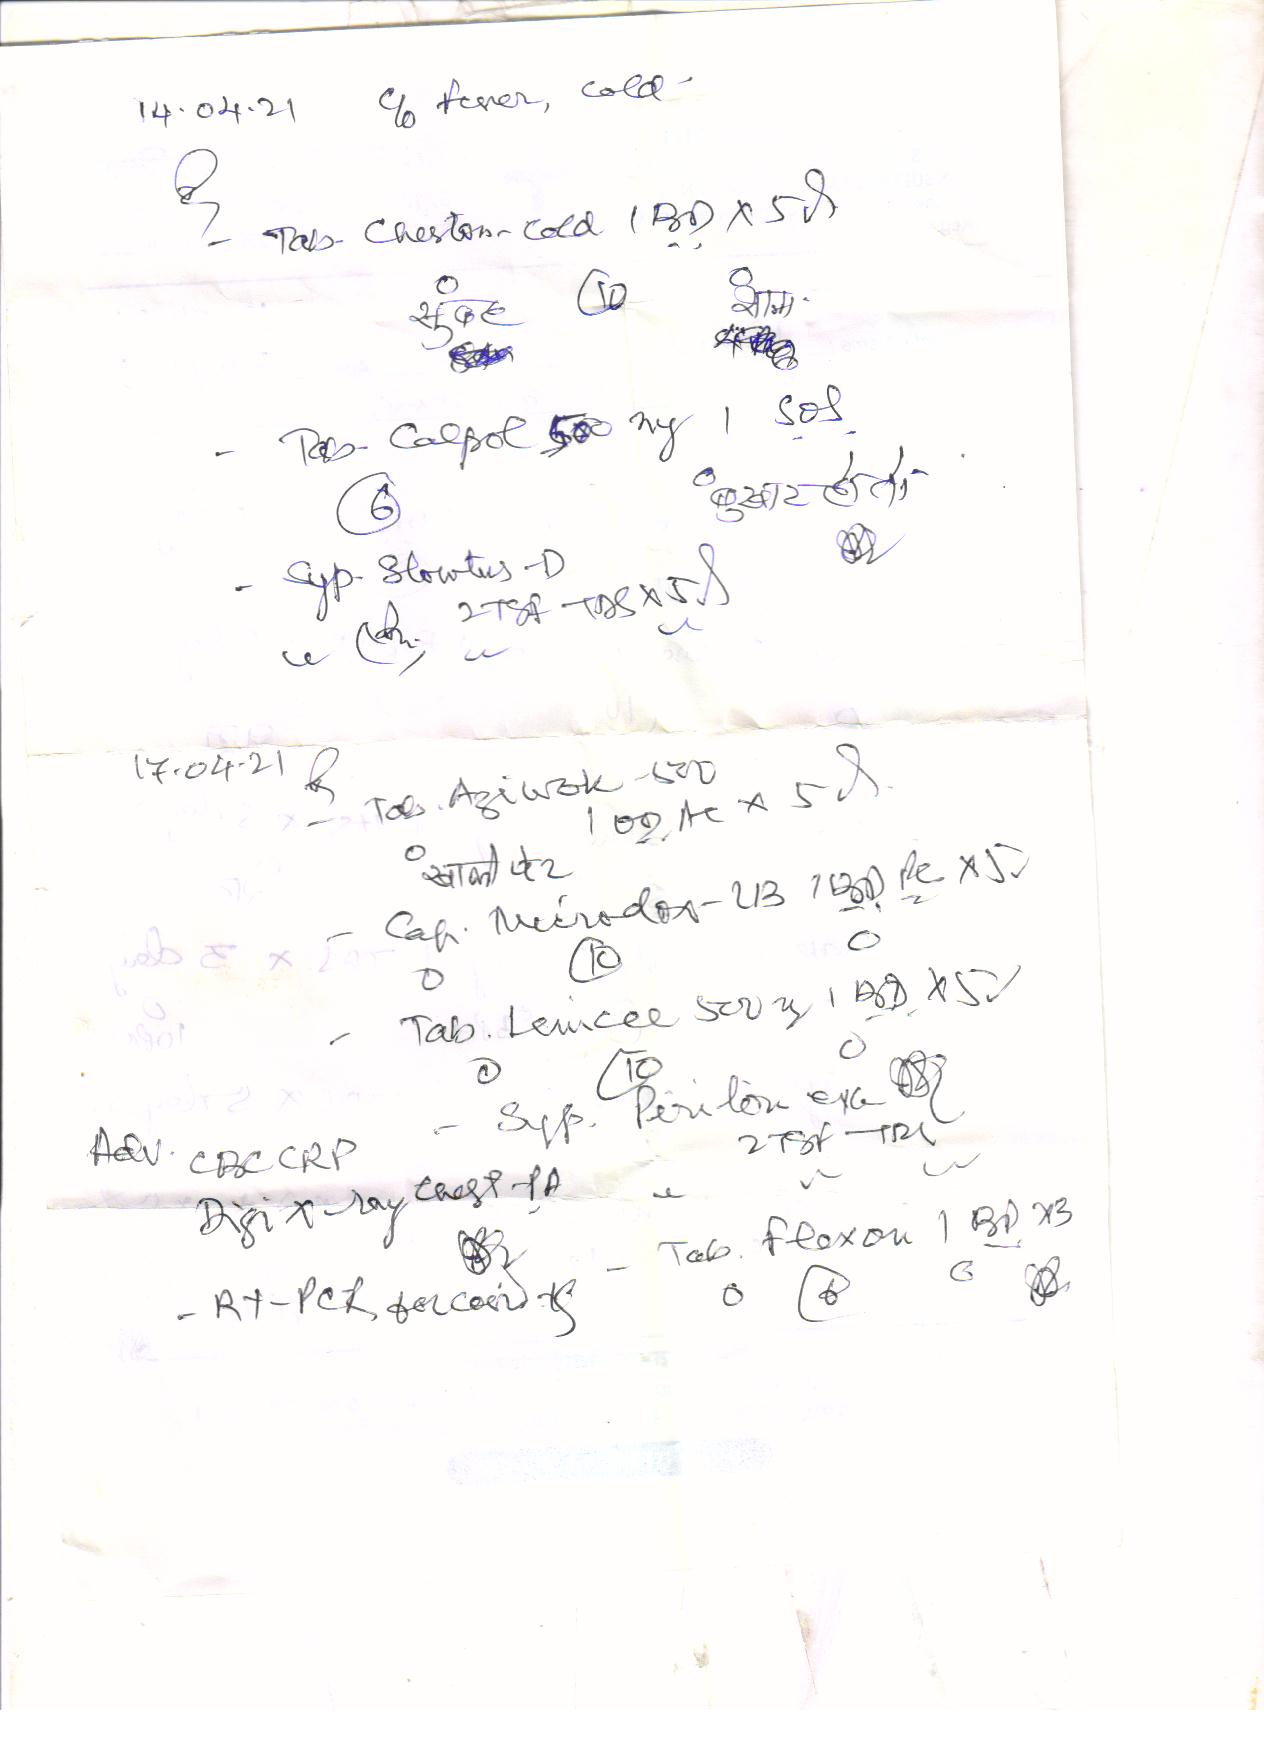 14.04.21 c/o fever, cold
Rx
- Tab. Cheston-cold 1 BD x 5d
सुबह 10 शाम
- Tab- Calpol 500 mg 1 SOS
6 बुखार हो तो
- Syp. Slowtus-D
2TSF TDS x 5d
17.04.21 Rx
- Tab. Aziwok -500
1 OD AC x 5d
खाली पेट
- Cap. Microdox-LB 1 BD PC x 5d
10
- Tab. Lemicee 500 mg 1 BD x 5d
10
- Syp. Piriton
2 TSF TDS
Adv. CBC CRP
Digi X-ray Chest-PA
- Tab. flexon 1 BD x3
6
- RT-PCR for covid 19